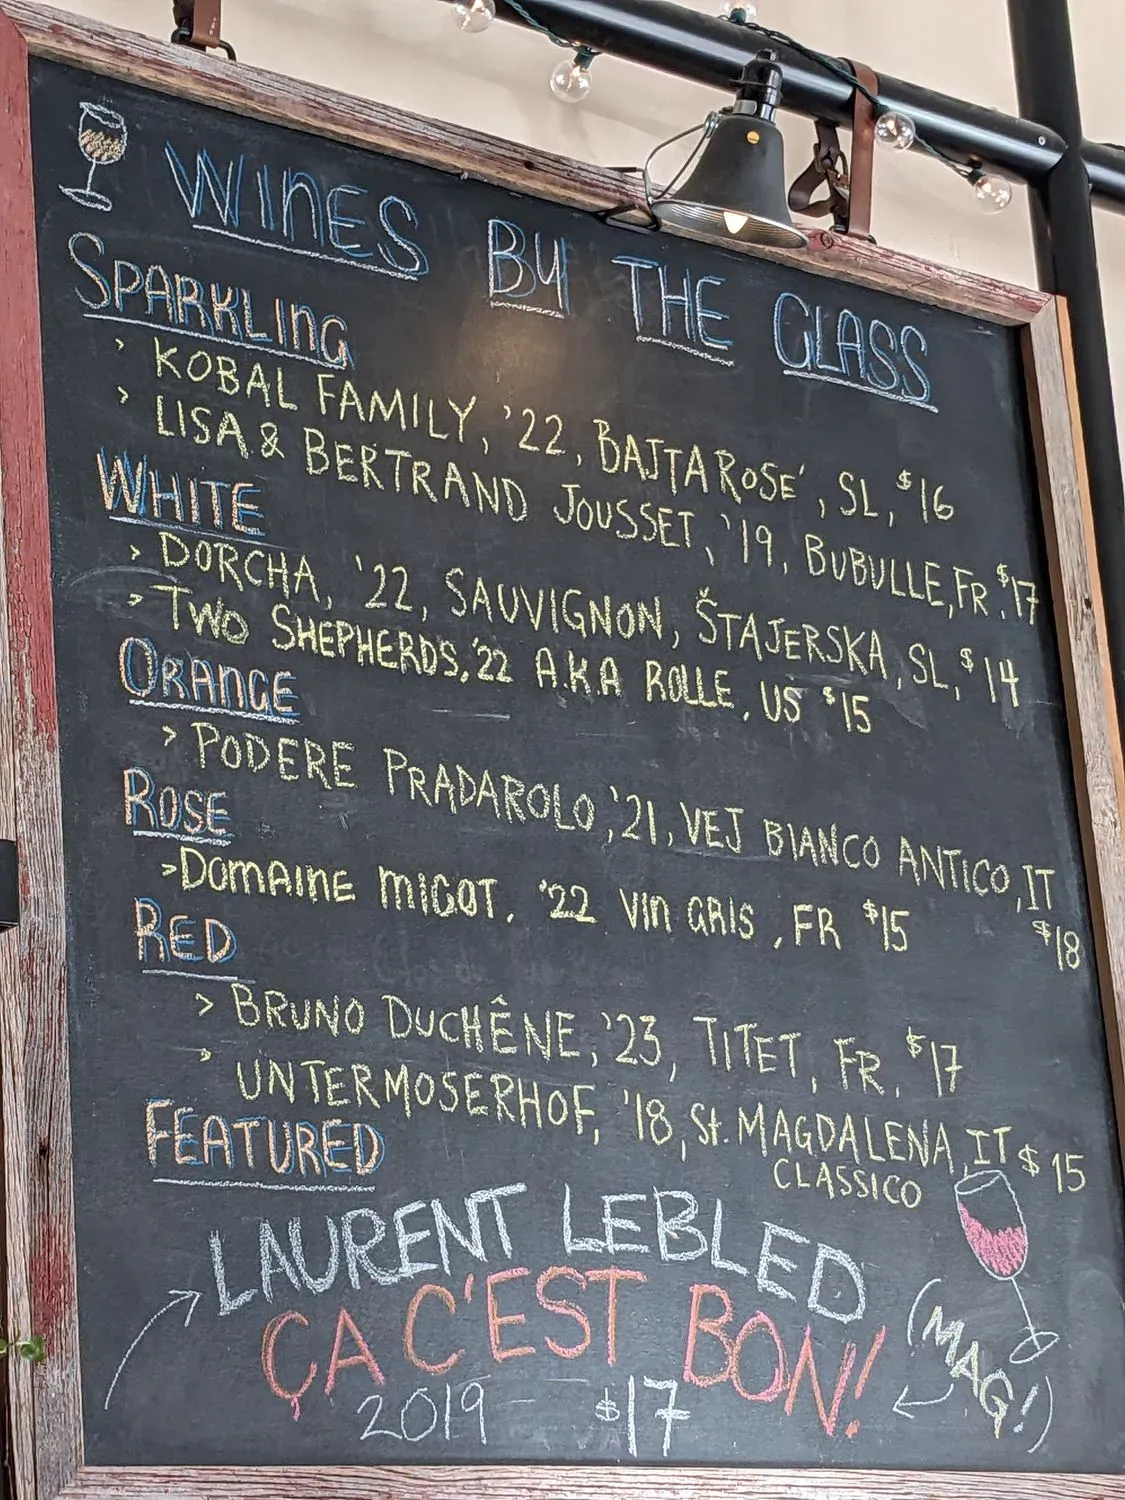 WINES BY THE GLASS
SPARKLING
> KOBAL FAMILY, '22, BAJTA ROSÉ, SL, $16
> LISA & BERTRAND JOUSSET, '19, BUBULLE, FR. $17
WHITE
> DORCHA, '22, SAUVIGNON, ŠTAJERSKA, SL, $14
> TWO SHEPHERDS, '22 A.K.A ROLLE, US $15
ORANGE
> PODERE PRADAROLO, '21, VEJ BIANCO ANTICO, IT
$18
ROSE
> DOMAINE MIGOT. '22 VIN GRIS, FR $15
RED
> BRUNO DUCHÊNE, '23, TITET, FR, $17
> UNTERMOSERHOF, '18, St. MAGDALENA, IT $15
CLASSICO
FEATURED
LAURENT LEBLED
ÇA C'EST BON!
(MAG!)
2019 $17